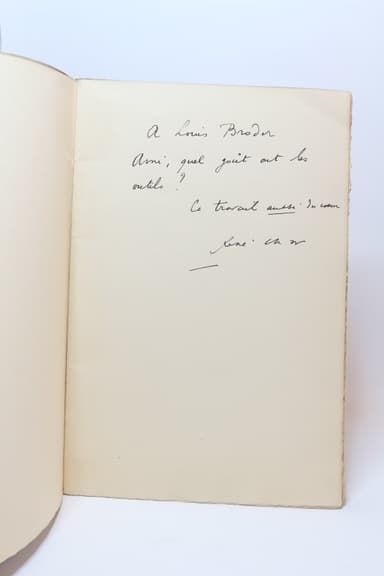 A Louis Broder
Ami, quel goût ont les
outils ?
Ce travail aussi du cœur
René Char